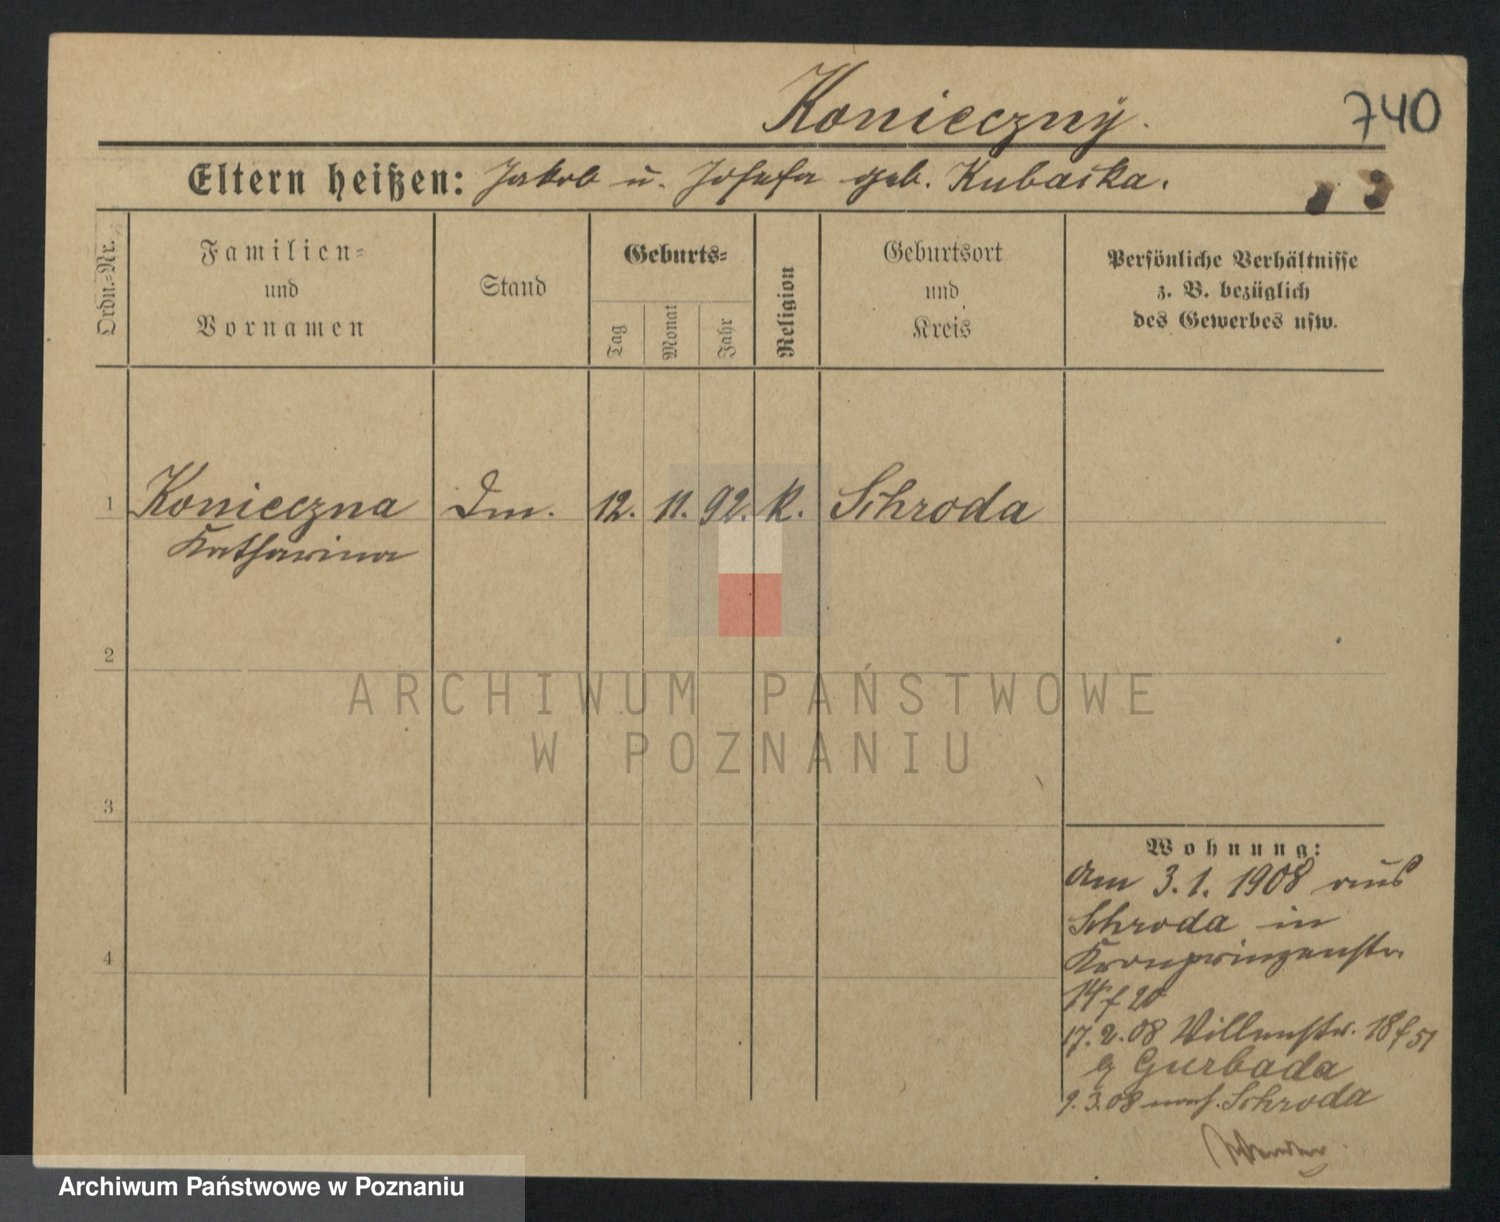 Konieczny.
740
Eltern heißen: Jakob u. Josefa geb. Kubacka.
Ordn.=Nr.
Familien=
und
Vornamen
Stand
Geburts=
Tag
Monat
Jahr
Religion
Geburtsort
und
Kreis
Persönliche Verhältnisse
z. B. bezüglich
des Gewerbes usw.
1 Konieczna Dm. 12. 11. 92. K. Schroda
Katharina
2
ARCHIWUM PAŃSTWOWE
W POZNANIU
3
Wohnung:
am 3.1.1908 aus
Schroda in
Kronprinzenstr.
17.2.08 Villenstr. 18
Gurbada
9.3.08 nach Schroda
4
Archiwum Państwowe w Poznaniu